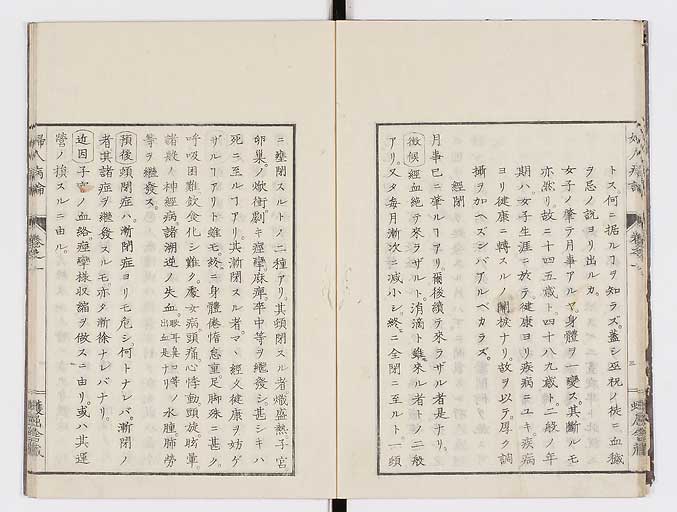 トス。何ニ據ルヿヲ知ラズ。蓋シ巫祝ノ徒ニ血穢
ヲ忌ノ説ヨリ出ルカ。
女子ノ肇テ月事アルヤ身體ヲ一變ス。其斷ルモ
亦然リ。故ニ十四五歳ト。四十八九歳ト。二般ノ年
期ハ女子生涯ニ於テ健康ヨリ疾病ニユキ。疾病
ヨリ健康ニ轉スルノ關棙ナリ。故ヲ以テ。厚ク調
攝ヲ加ヘズンバアルベカラズ。
經閉
月事已ニ肇ルヿアリ。爾後續テ來ラザル者是ナリ。
徴候 經血絶テ來ラザルト。涓滴ト雖來ル者トノ二般
アリ。又タ毎月漸次ニ减少シ。終ニ全閉ニ至ルト。一頓
ニ壅閉スルトノ二種アリ。其頓閉スル者熾盛熱子宮
卵巣ノ焮衝劇キ痙攣麻痺。卒中等ヲ繼發シ甚シキハ
死ニ至ルヿアリ。其漸閉スル者ハ。マヽ經久健康ヲ妨ゲ
ザルヿアリト雖モ。終ニ身體倦惰怠重足脚殊ニ甚ク。
呼吸困難飲食化シ難ク。處女病頭痛。心悸動。頭旋眩暈。
諸般ノ神經病諸溯逆ノ失血眼耳鼻口等ノ出血是ナリ水腫肺勞
等ヲ繼發ス。
預後 頓閉症ハ。漸閉症ヨリモ危シ。何トナレバ。漸閉ノ
者其諸症ヲ繼發スルモ。亦タ漸徐ナレバナリ。
近因 子宮ノ血絡痙攣様收縮ヲ做スニ由リ。或ハ其運
營ノ損スルニ由ル。
婦人病論